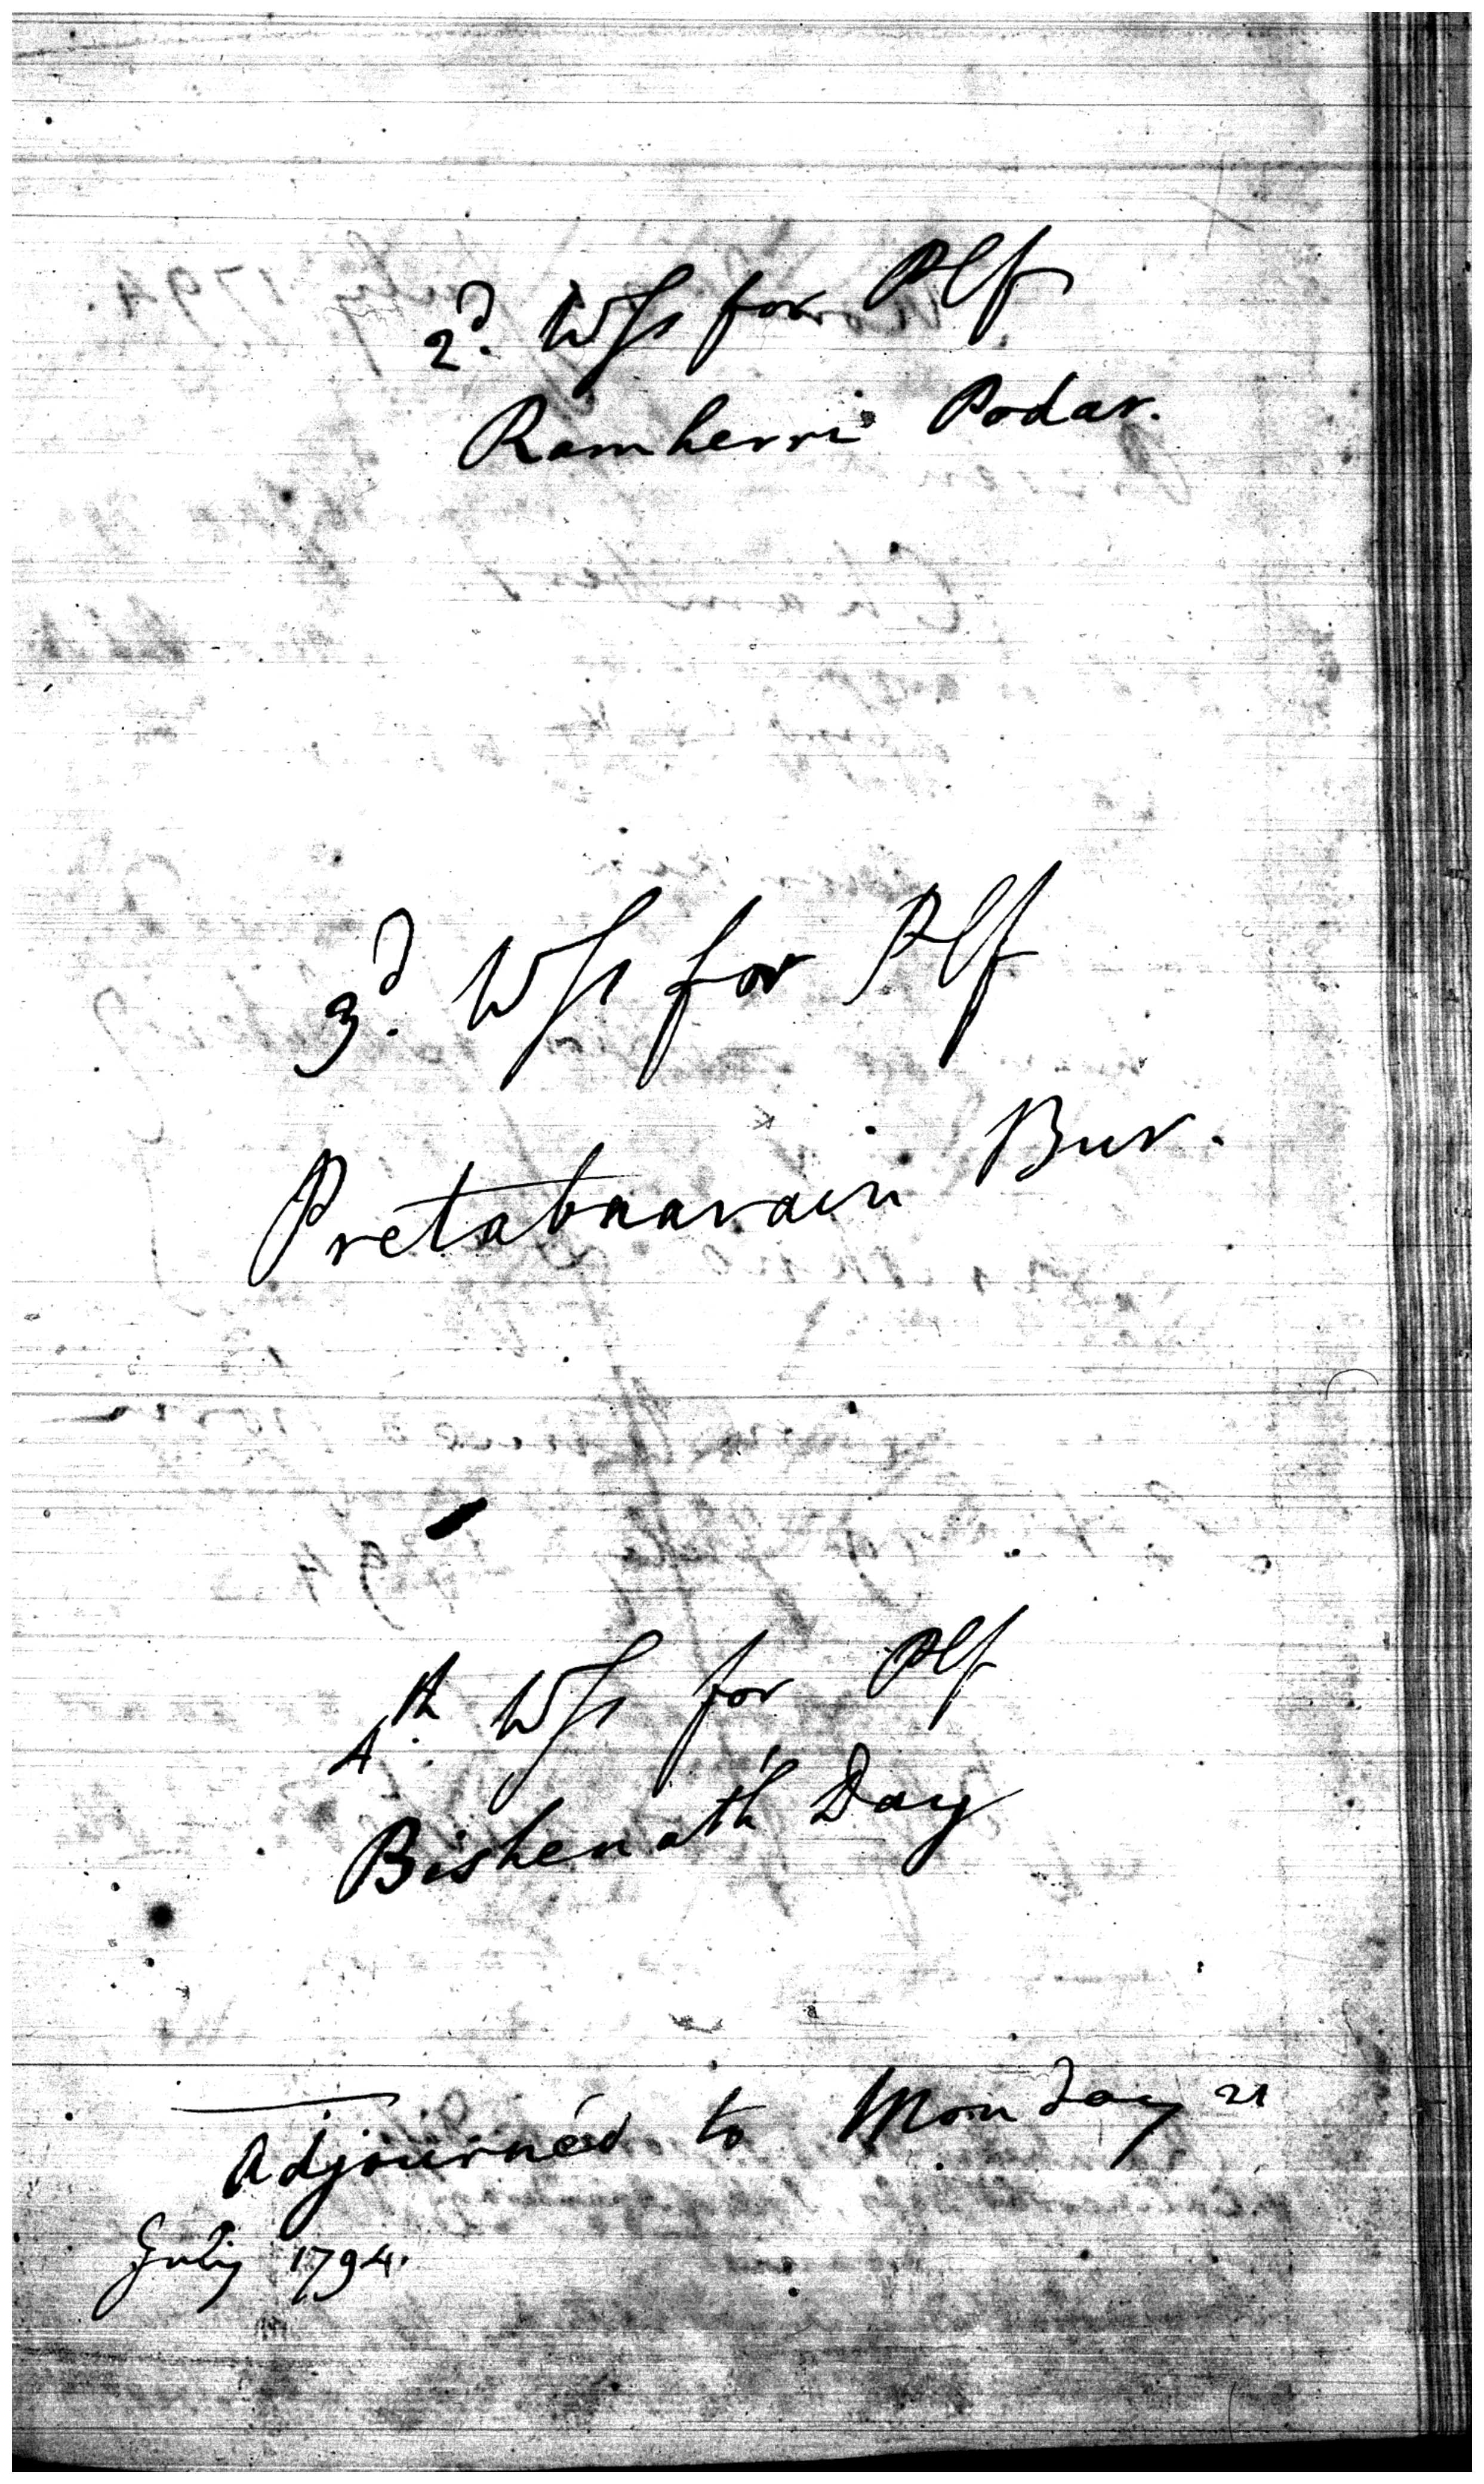 2d. Wss for Plf
Ramherri Podar.
3d. Wss for Plf
Pretabnarain Bur.
4th. Wss for Plf
Bishenath Day
Adjourned to Monday 21
July 1794.